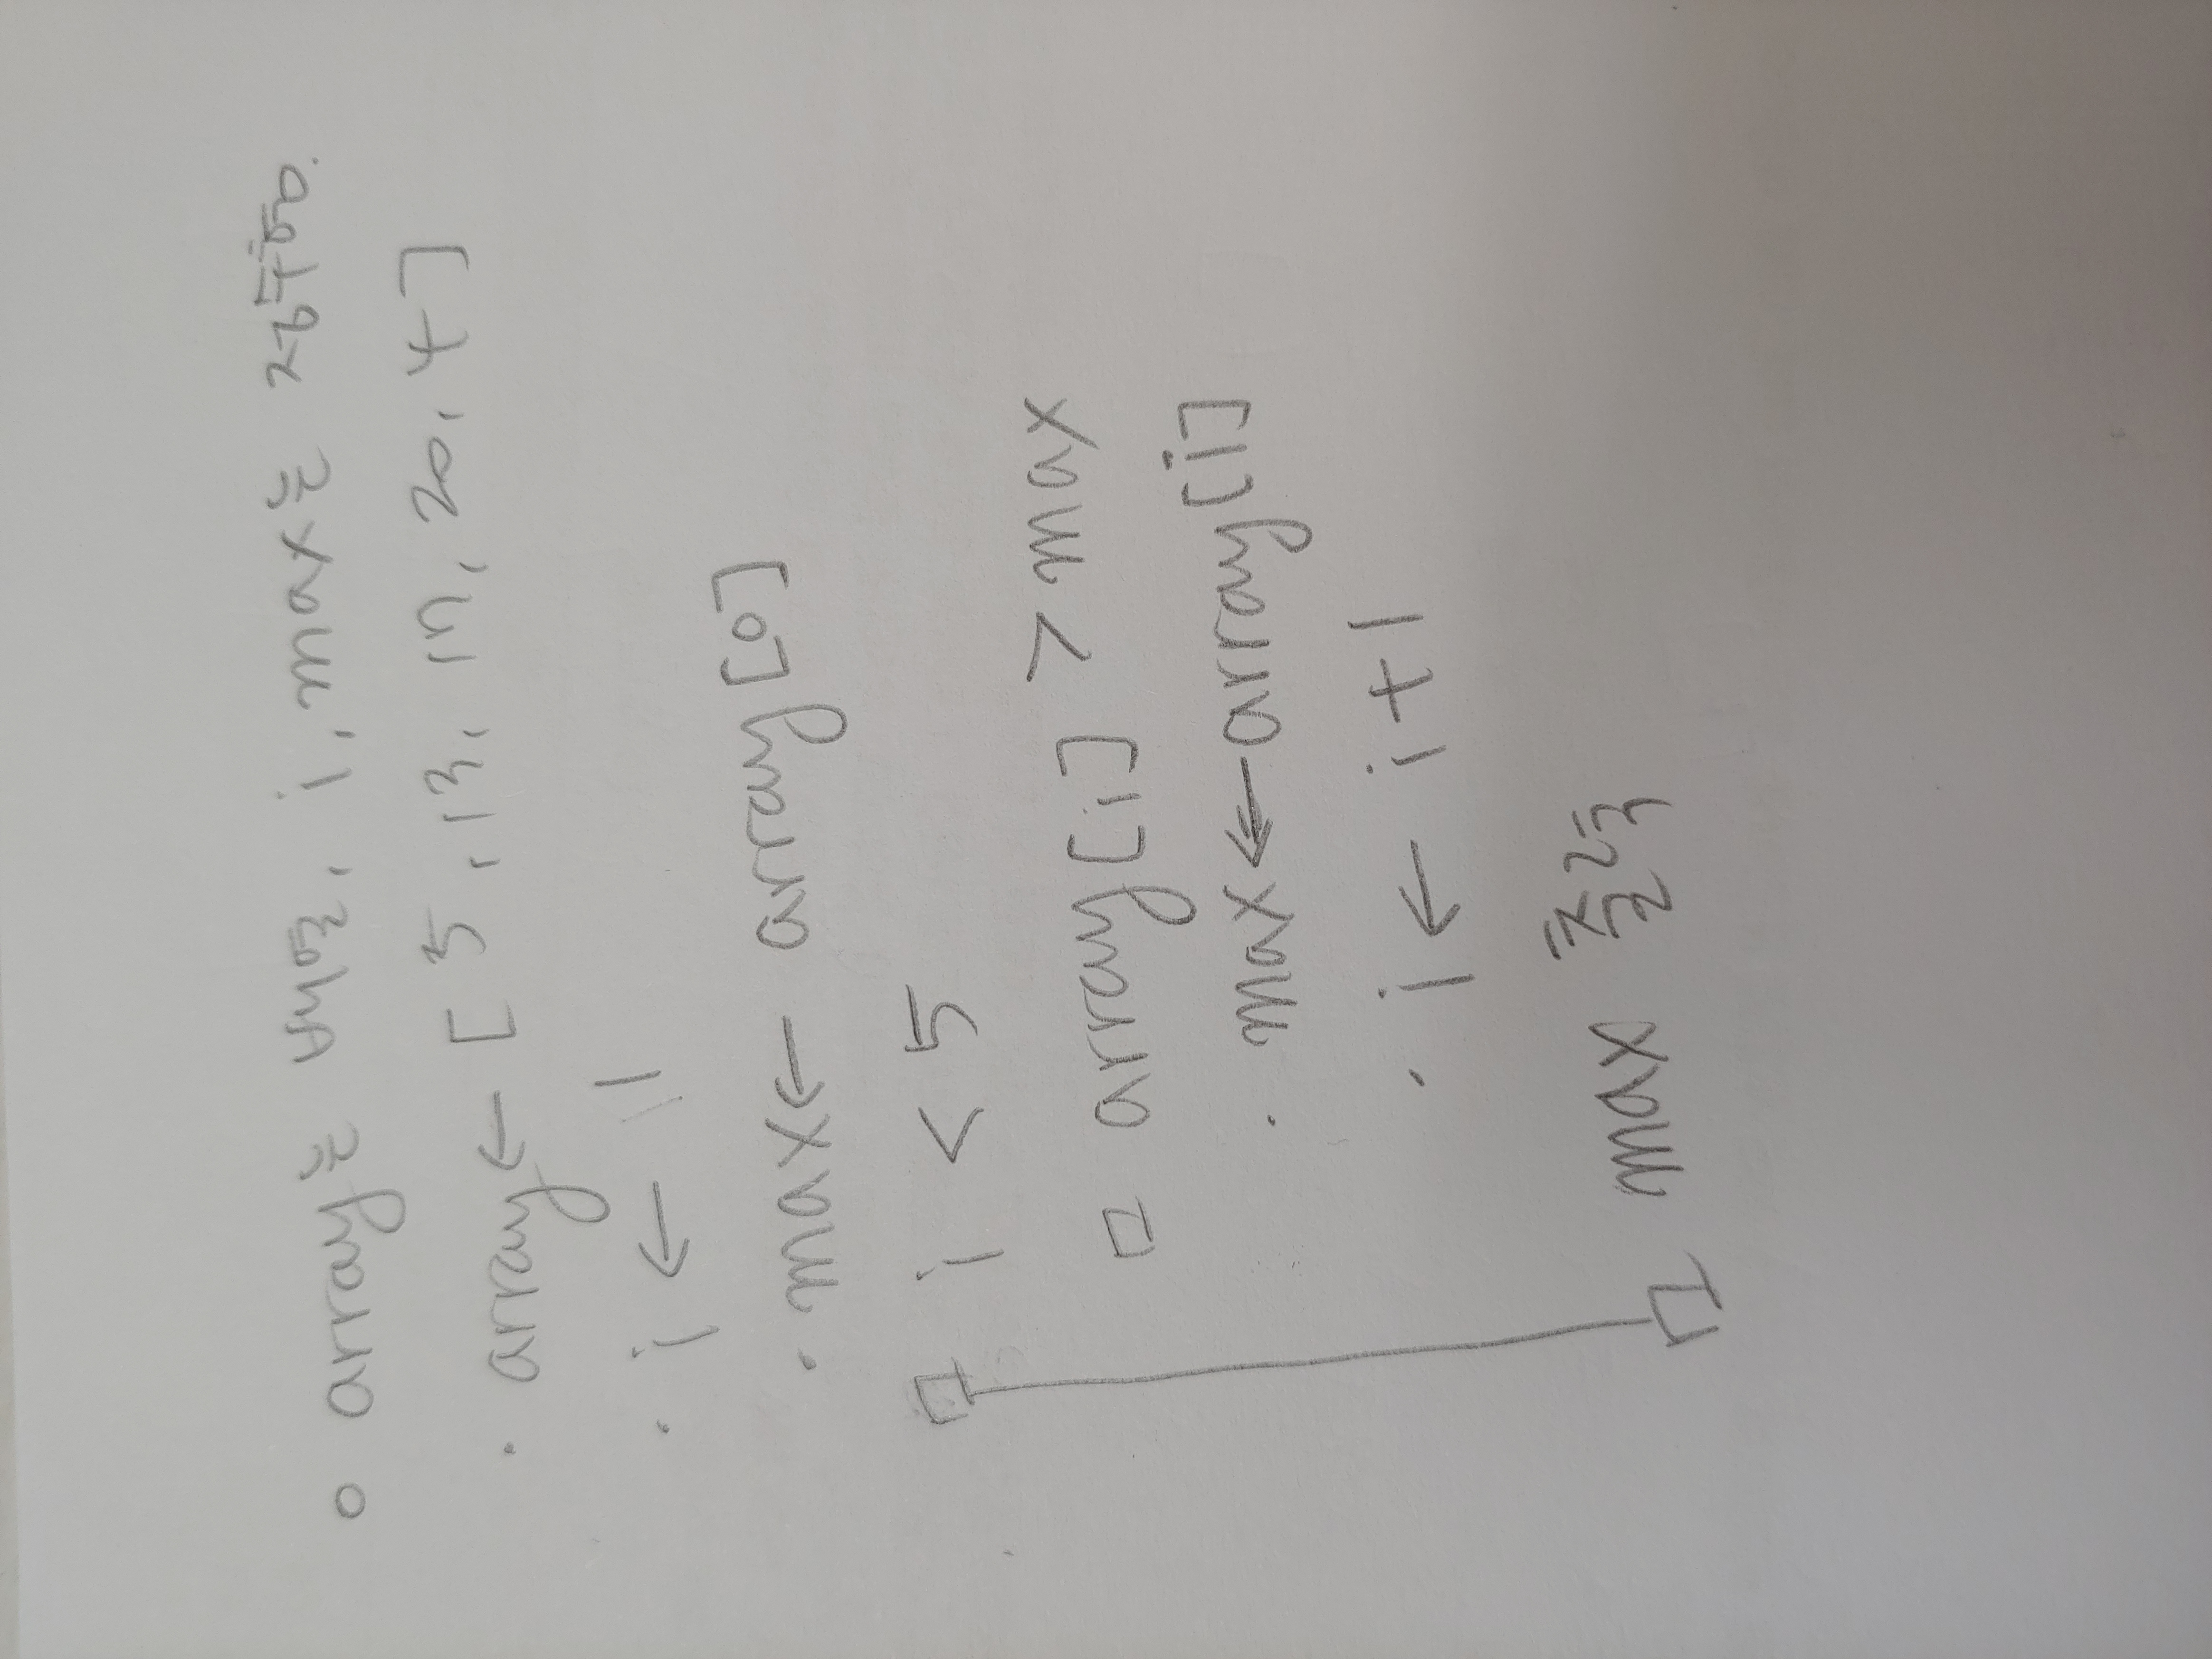 ○ array는 배열, i, max는 정수형.
· array ← [5, 13, 17, 20, 4]
· i ← 1
· max ← array[0]
□ i < 5
□ array[i] > max
· max ← array[i]
· i ← i+1
□ max 출력